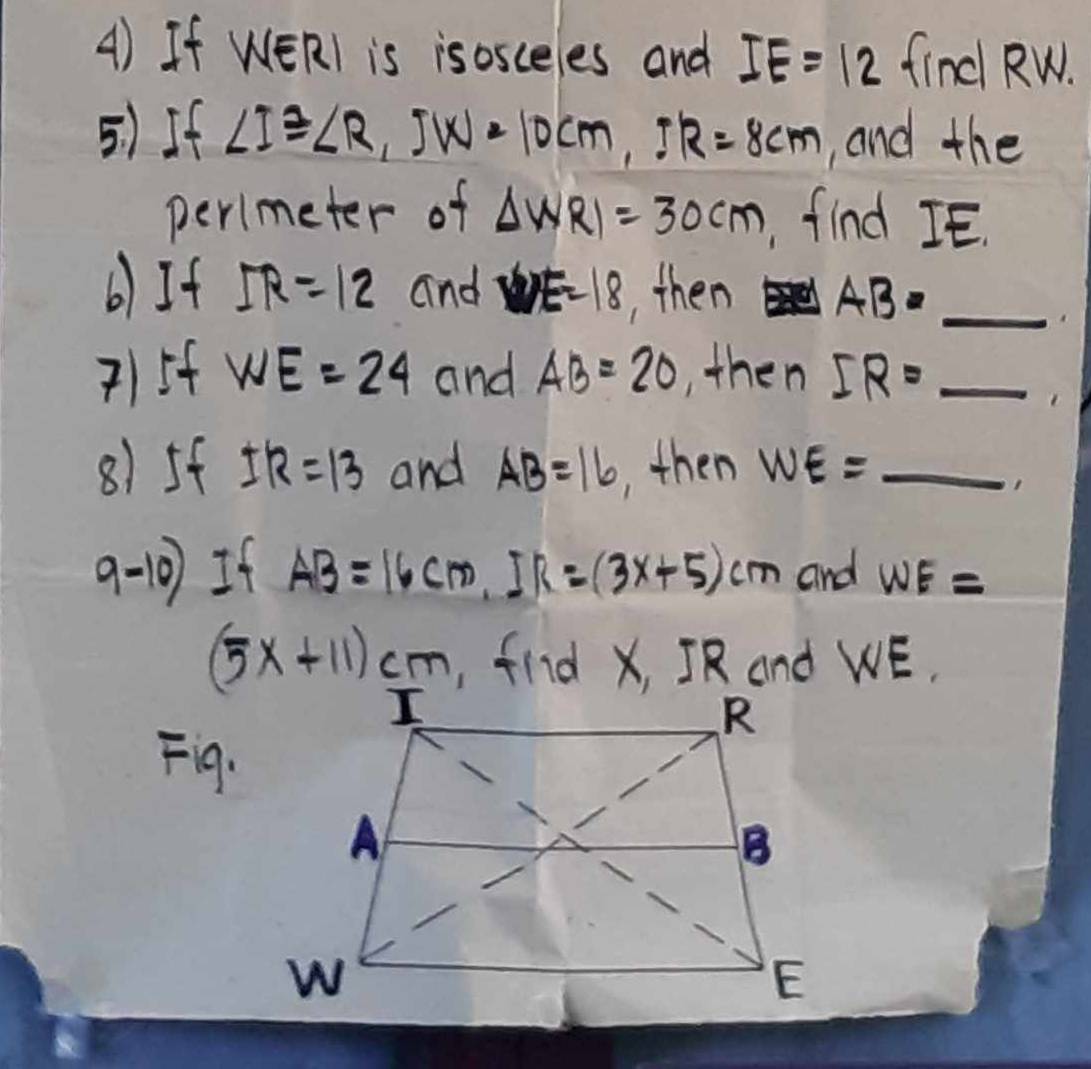 4) If WERI is isosceles and IE = 12 find RW.
5.) If ∠I≅∠R, IW = 10cm, IR = 8cm, and the
perimeter of ΔWRI = 30cm, find IE.
6) If IR = 12 and WE = 18, then AB = ____.
7) If WE = 24 and AB = 20, then IR = ____.
8) If IR = 13 and AB = 16, then WE = ____.
9-10) If AB = 16 cm, IR = (3x+5) cm and WE =
(5x+11) cm, find x, IR and WE.
Fig.
I R
A B
W E